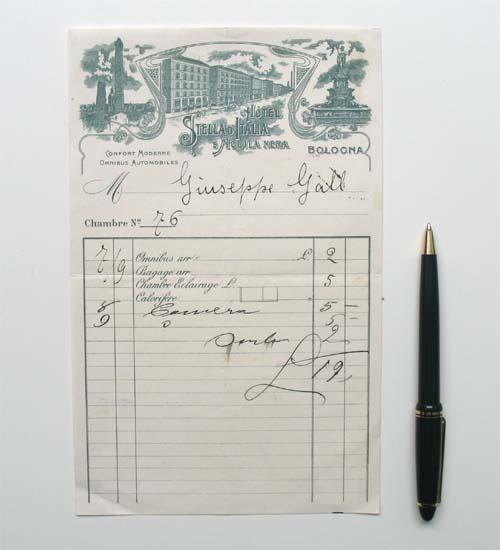 HOTEL
STELLA D'ITALIA
E AQUILA NERA
BOLOGNA
CONFORT MODERNE
OMNIBUS AUTOMOBILES
M Giuseppe Galb
Chambre Nº 76
7/9 Omnibus arr £ 2
Bagage arr
Chambre Eclairage £ 5
Calorifère
8 Camera 5 —
9 5
2
£ 19, —